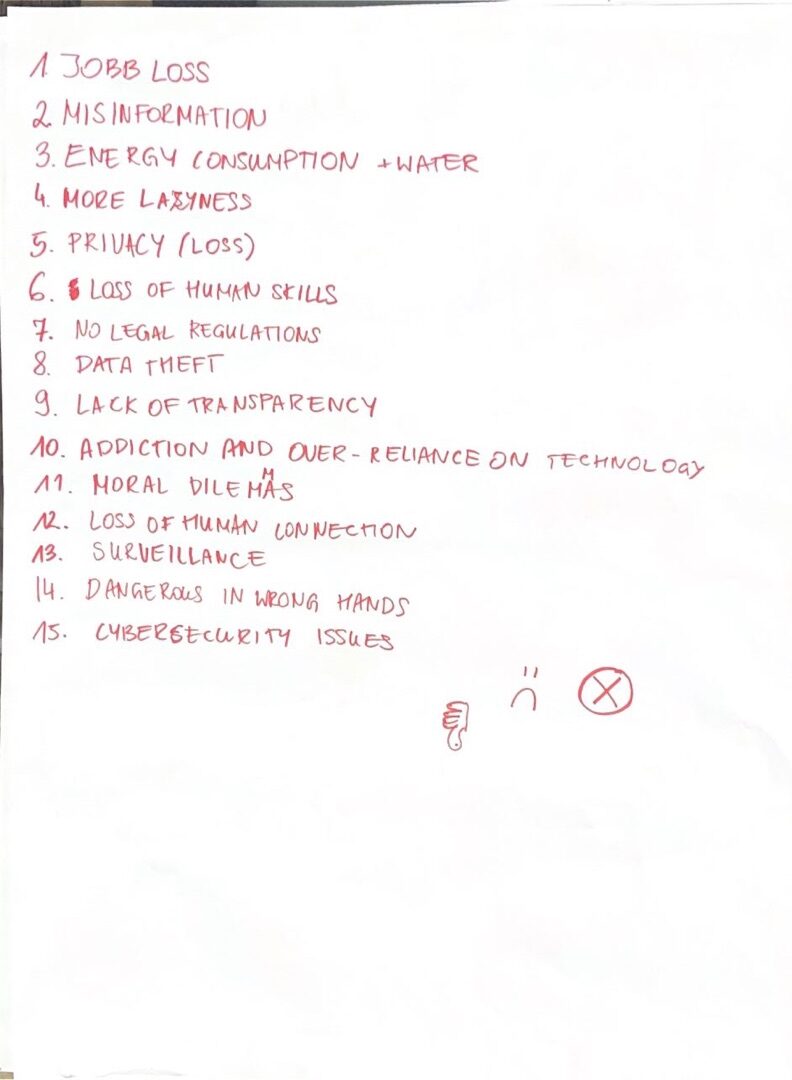 1 JOBB LOSS
2 MISINFORMATION
3. ENERGY CONSUMPTION + WATER
4. MORE LAZYNESS
5. PRIVACY (LOSS)
6. LOSS OF HUMAN SKILLS
7. NO LEGAL REGULATIONS
8. DATA THEFT
9. LACK OF TRANSPARENCY
10. ADDICTION AND OVER-RELIANCE ON TECHNOLOGY
11. MORAL DILEMMAS
12. LOSS OF HUMAN CONNECTION
13. SURVEILLANCE
14. DANGEROUS IN WRONG HANDS
15. CYBERSECURITY ISSUES